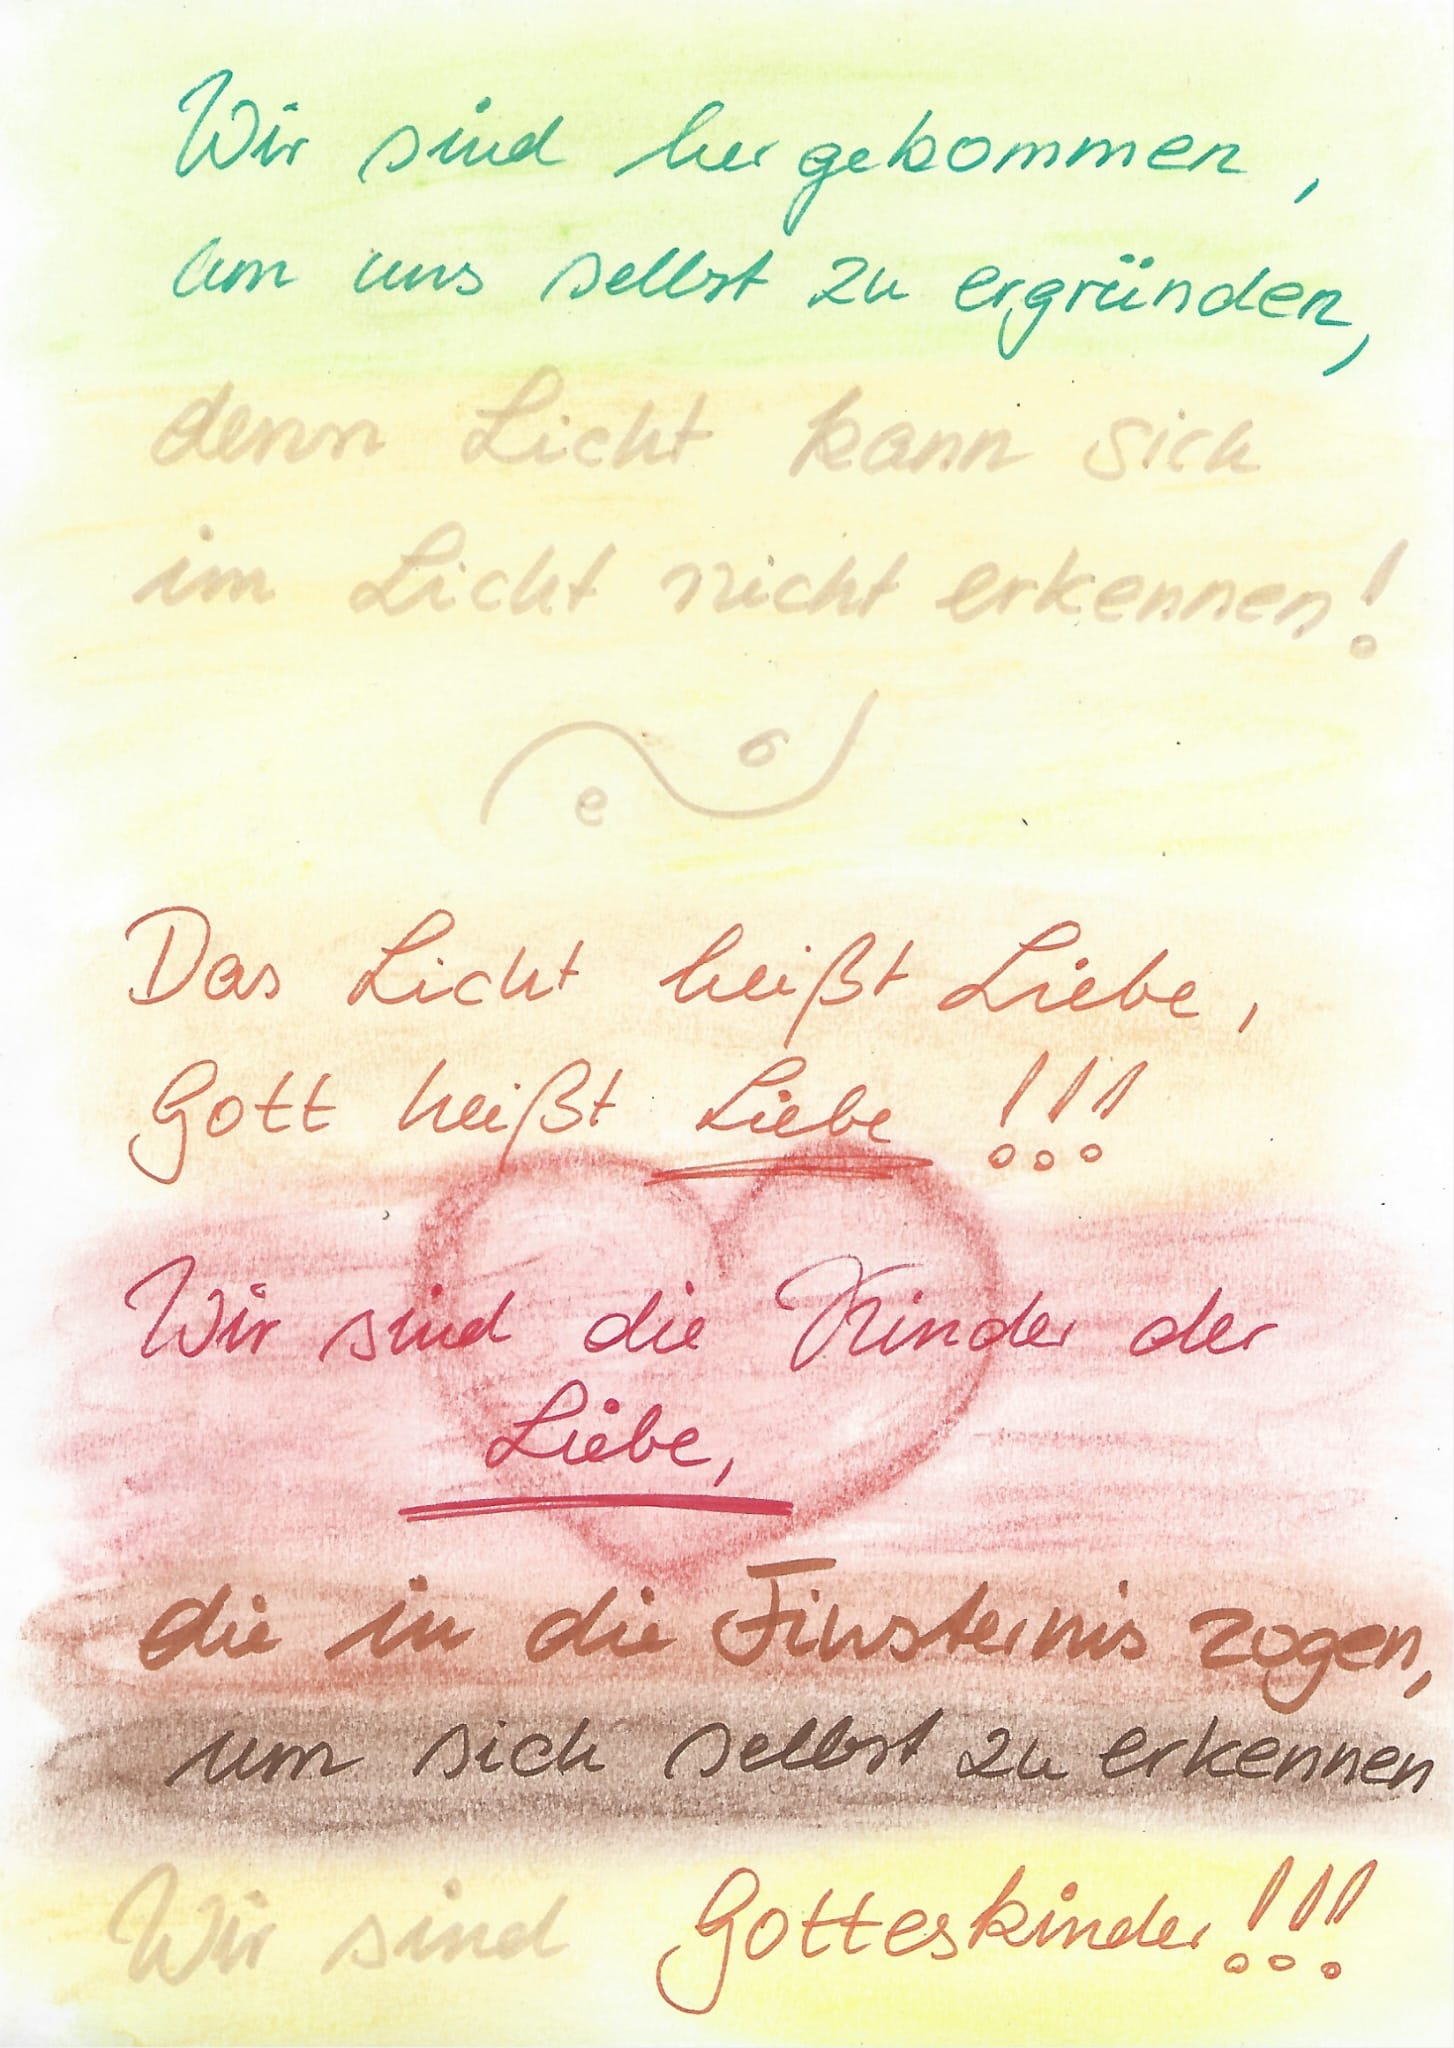 Wir sind hergekommen,
um uns selbst zu ergründen,
denn Licht kann sich
im Licht nicht erkennen!
Das Licht heißt Liebe,
Gott heißt Liebe !!!
Wir sind die Kinder der
Liebe,
die in die Finsternis zogen,
um sich selbst zu erkennen
Wir sind Gotteskinder!!!